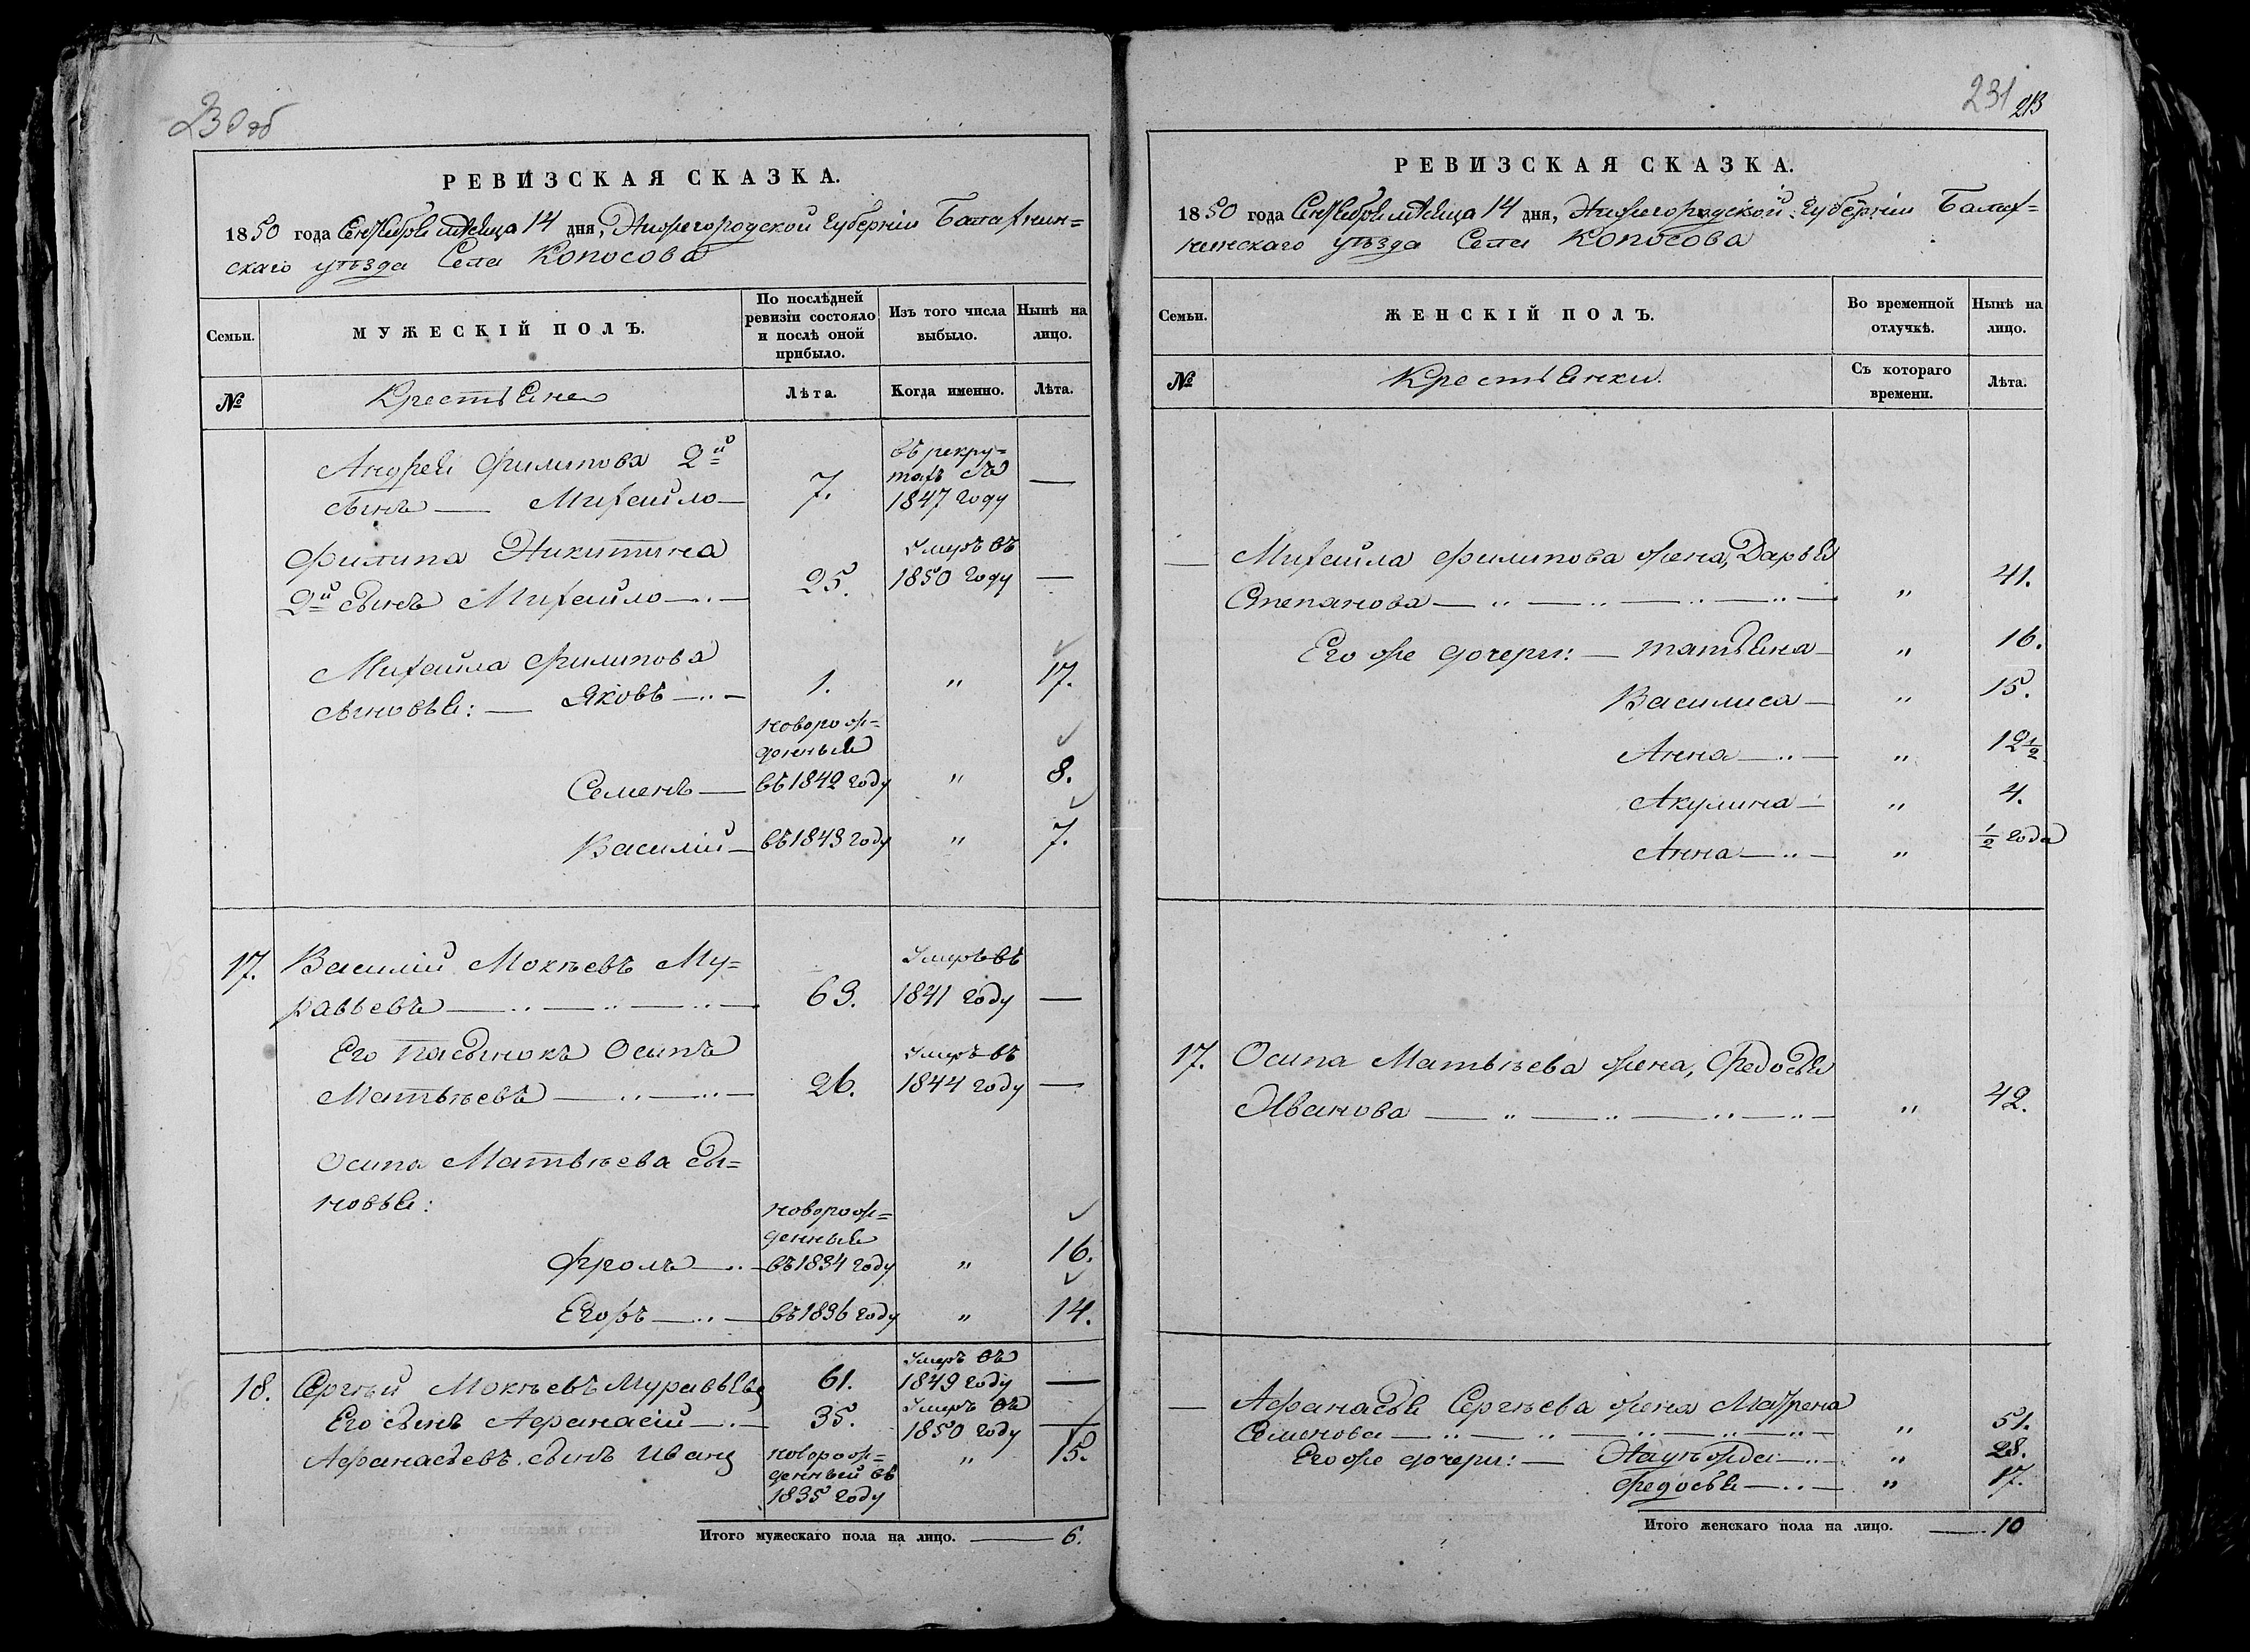 230об
РЕВИЗСКАЯ СКАЗКА.
1850 года Сентября месяца 14 дня, Нижегородской Губернiи Балахнин=
скаго уѣзда Села Копосова
Семьи.
МУЖЕСКІЙ ПОЛЪ.
По послѣдней
ревизіи состояло
и послѣ оной
прибыло.
Изъ того числа
выбыло.
Нынѣ на
лицо.
№
Крестьяне
Лѣта.
Когда именно.
Лѣта.
Андрея Филипова 2й
сынъ — Михайло —
7.
въ рекру=
тахъ съ
1847 году
—
Филипа Никитина
2й сынъ Михайло —
25.
Умеръ въ
1850 году
—
Михайла Филипова
сыновья: — Яковъ —
1.
"
17.
Семенъ —
новорож=
денныя
въ 1842 году
"
8.
Василій —
въ 1843 году
"
7.
17.
Василій Мокѣевъ Му=
равьевъ —
63.
Умеръ въ
1841 году
—
Его пасынокъ Осипъ
Матвѣевъ —
26.
Умеръ въ
1844 году
—
Осипа Матвѣева сы=
новья:
Фролъ —
новорож=
денныя
въ 1834 году
"
16.
Егоръ —
въ 1836 году
"
14.
18.
Сергѣй Мокѣевъ Муравьевъ
61.
Умеръ въ
1849 году
—
Его сынъ Афанасій —
35.
Умеръ въ
1850 году
—
Афанасьевъ сынъ Иванъ
новорож=
денный въ
1835 году
"
15.
Итого мужескаго пола на лицо. — 6.
231 213
РЕВИЗСКАЯ СКАЗКА.
1850 года Сентября месяца 14 дня, Нижегородской Губернiи Балах=
нинскаго уѣзда Села Копосова
Семьи.
ЖЕНСКІЙ ПОЛЪ.
Во временной
отлучкѣ.
Нынѣ на
лицо.
№
Крестьянки.
Съ котораго
времени.
Лѣта.
— Михайла Филипова жена, Дарья
Степанова — " 41.
Его же дочери: — Татьяна — " 16.
Василиса — " 15.
Анна — " 12½
Акулина — " 4.
Анна — " ½ года
17. Осипа Матвѣева жена, Федосья
Иванова — " 42.
— Афанасья Сергѣева жена Маѳрена
Семенова — " 51.
Его же дочери: — Надѣжда — " 28.
Федосья — " 17.
Итого женскаго пола на лицо. — 10